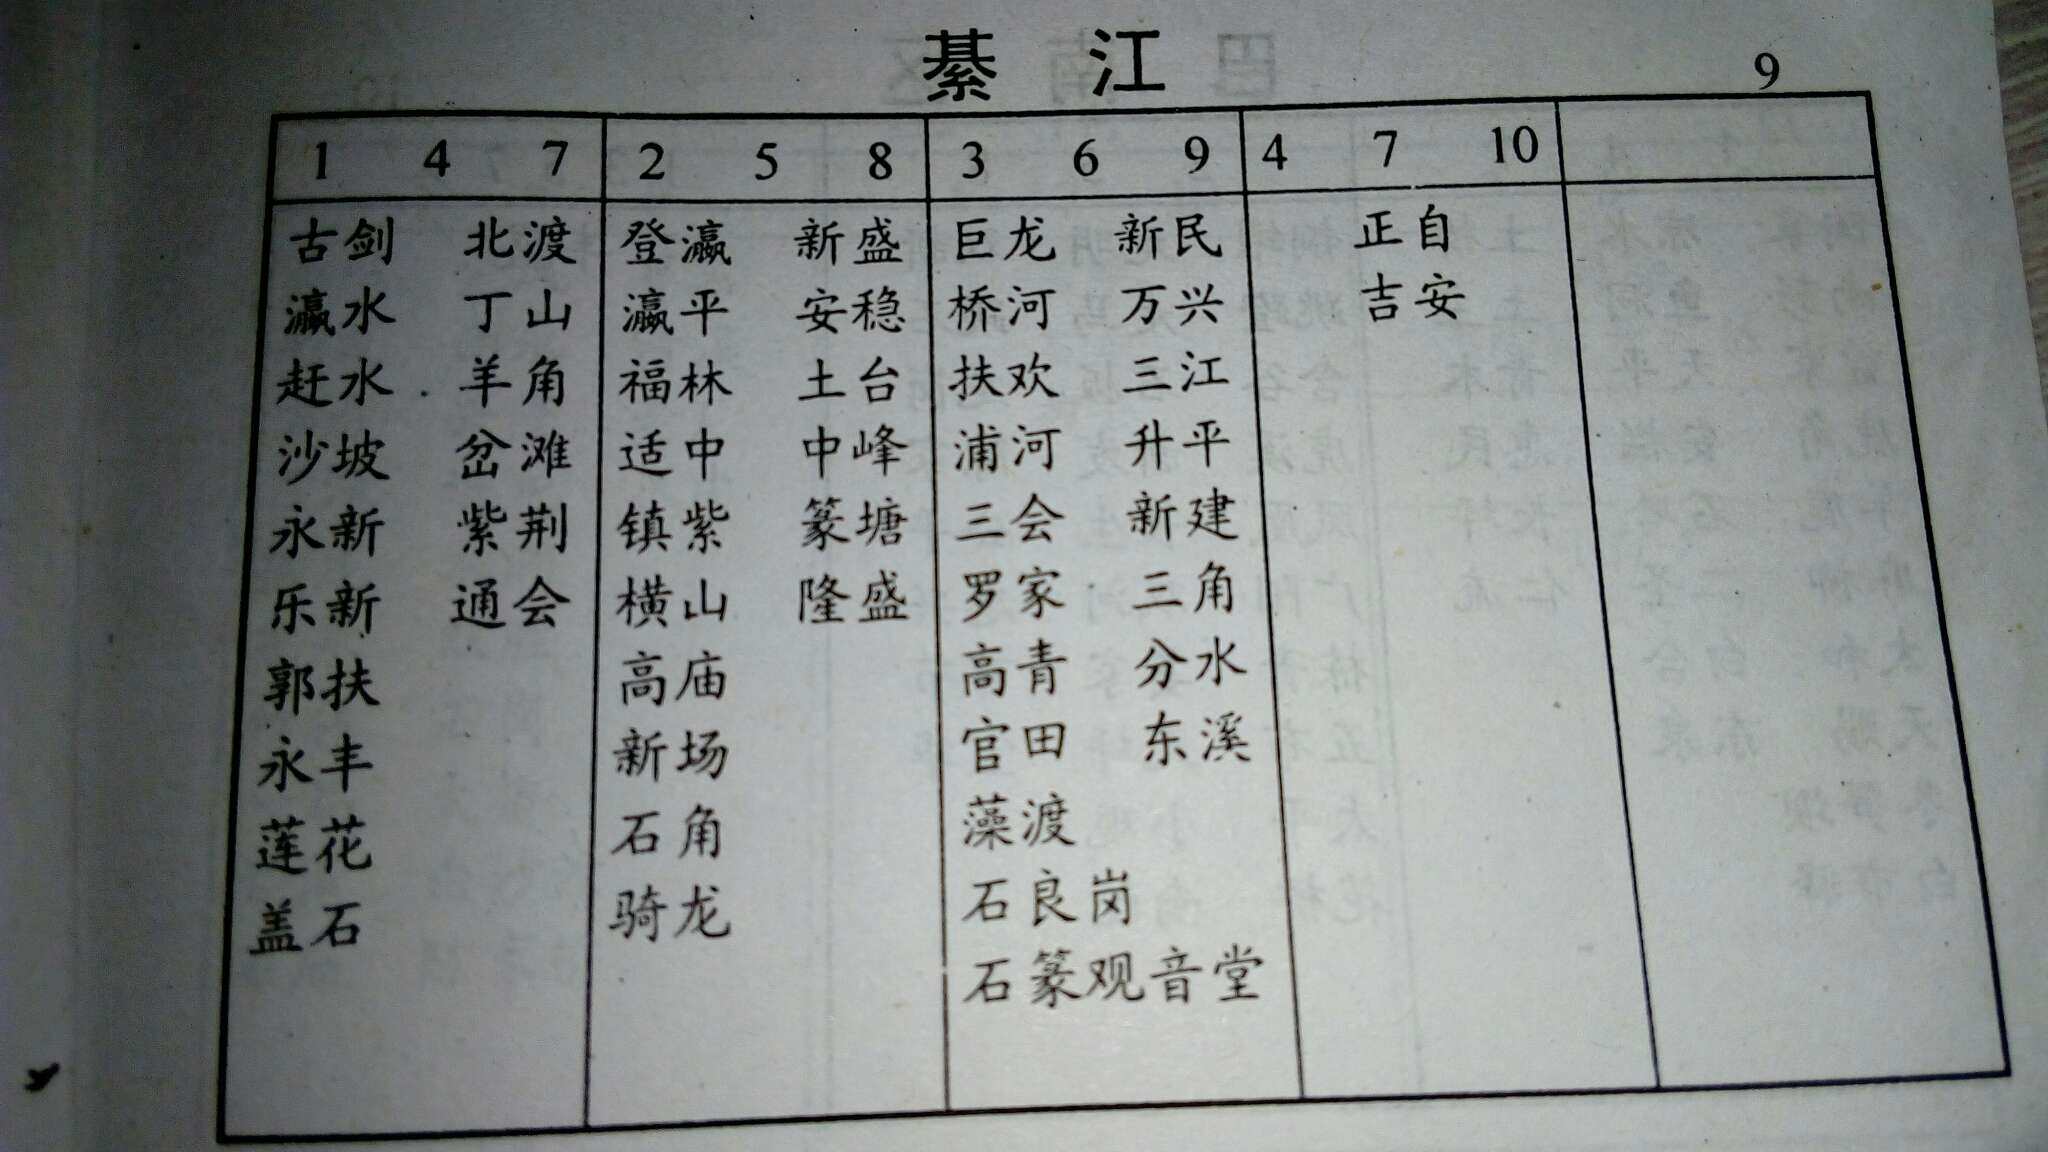 綦江
9
1 4 7 2 5 8 3 6 9 4 7 10
古剑 北渡 登瀛 新盛 巨龙 新民 正自
瀛水 丁山 瀛平 安稳 桥河 万兴 吉安
赶水 羊角 福林 土台 扶欢 三江
沙坡 岔滩 适中 中峰 浦河 升平
永新 紫荆 镇紫 篆塘 三会 新建
乐新 通会 横山 隆盛 罗家 三角
郭扶 高庙 高青 分水
永丰 新场 官田 东溪
莲花 石角 藻渡
盖石 骑龙 石良岗
石篆观音堂